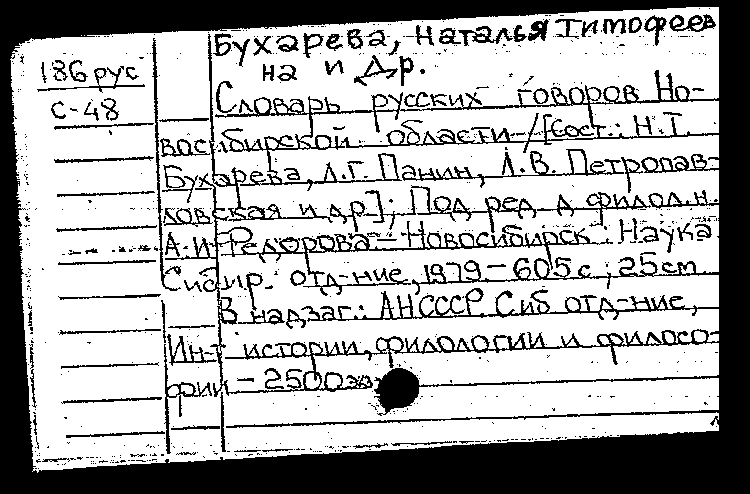 Бухарева, Наталья Тимофеев
на и др.
186 рус
С-48
Словарь русских говоров Но-
восибирской области / [Сост.: Н.Т.
Бухарева, А.Г. Панин, Л.В. Петропав-
ловская и др.]; Под ред. д филол.н.
А.И. Федорова - Новосибирск: Наука
Сибир. отд-ние, 1979 - 605 с; 25 см
В надзаг.: АН СССР. Сиб отд-ние,
Ин-т истории, филологии и филосо-
фии - 2500 экз